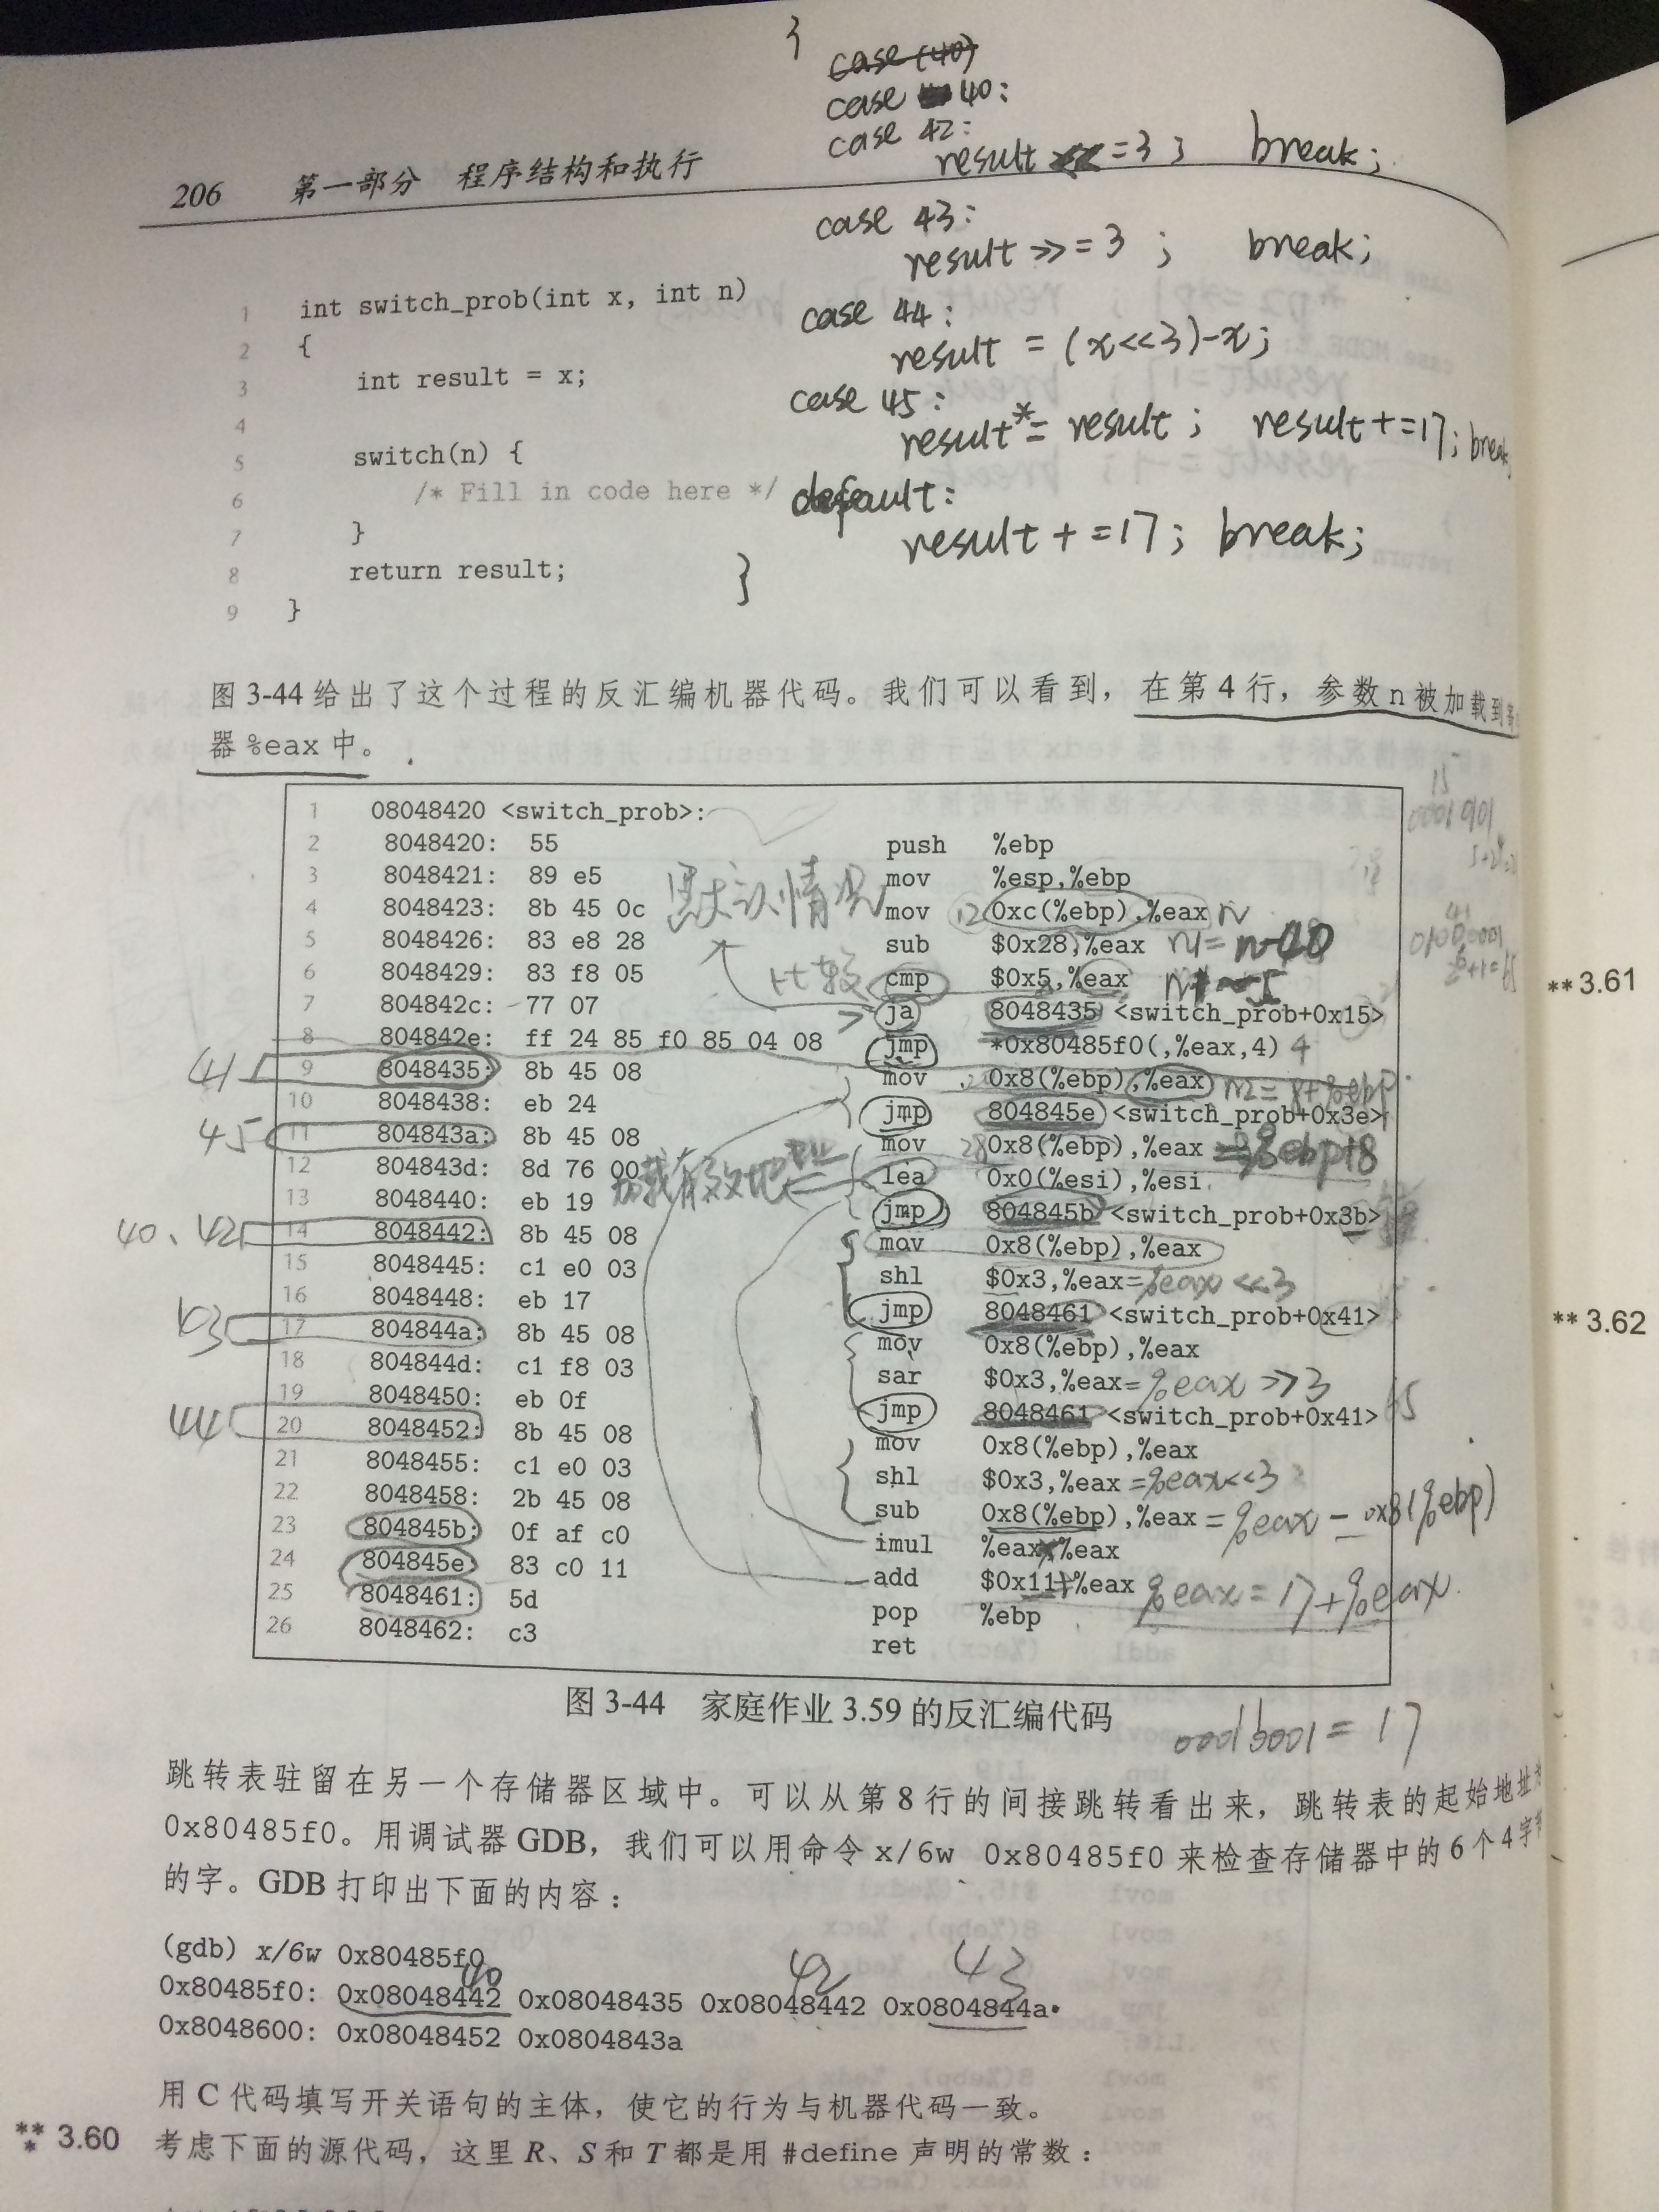 }
case (40)
case 40:
case 42:
result <<= 3; break;
206 第一部分 程序结构和执行
case 43:
result >>= 3; break;
1 int switch_prob(int x, int n)
2 {
3 int result = x;
4
5 switch(n) {
6 /* Fill in code here */
7 }
8 return result;
9 }
case 44:
result = (x<<3)-x;
case 45:
result *= result; result += 17; break
default:
result += 17; break;
}
图 3-44 给出了这个过程的反汇编机器代码。我们可以看到，在第 4 行，参数 n 被加载到寄
器 %eax 中。
1 08048420 <switch_prob>:
2 8048420: 55 push %ebp
3 8048421: 89 e5 mov %esp,%ebp
4 8048423: 8b 45 0c 默认情况 mov 12 0xc(%ebp),%eax n
5 8048426: 83 e8 28 sub $0x28,%eax n1=n-40
6 8048429: 83 f8 05 比较 cmp $0x5,%eax
7 804842c: 77 07 > ja 8048435 <switch_prob+0x15>
8 804842e: ff 24 85 f0 85 04 08 jmp *0x80485f0(,%eax,4) 4
41 9 8048435: 8b 45 08 mov 0x8(%ebp),%eax n2=8+%ebp
10 8048438: eb 24 jmp 804845e <switch_prob+0x3e>
45 11 804843a: 8b 45 08 mov 0x8(%ebp),%eax
12 804843d: 8d 76 00 加载有效地址 lea 0x0(%esi),%esi
13 8048440: eb 19 jmp 804845b <switch_prob+0x3b>
40、42 14 8048442: 8b 45 08 mov 0x8(%ebp),%eax
15 8048445: c1 e0 03 shl $0x3,%eax=%eax<<3
16 8048448: eb 17 jmp 8048461 <switch_prob+0x41>
17 804844a: 8b 45 08 mov 0x8(%ebp),%eax
18 804844d: c1 f8 03 sar $0x3,%eax=%eax>>3
19 8048450: eb 0f jmp 8048461 <switch_prob+0x41> 65
44 20 8048452: 8b 45 08 mov 0x8(%ebp),%eax
21 8048455: c1 e0 03 shl $0x3,%eax=%eax<<3
22 8048458: 2b 45 08 sub 0x8(%ebp),%eax=%eax-0x8(%ebp)
23 804845b: 0f af c0 imul %eax,%eax
24 804845e: 83 c0 11 add $0x11,%eax %eax=17+%eax
25 8048461: 5d pop %ebp
26 8048462: c3 ret
**3.61
**3.62
图 3-44 家庭作业 3.59 的反汇编代码
00010001=17
跳转表驻留在另一个存储器区域中。可以从第 8 行的间接跳转看出来，跳转表的起始地址为
0x80485f0。用调试器 GDB，我们可以用命令 x/6w 0x80485f0 来检查存储器中的 6 个 4 字节
的字。GDB 打印出下面的内容：
(gdb) x/6w 0x80485f0
40 42 43
0x80485f0: 0x08048442 0x08048435 0x08048442 0x0804844a
0x8048600: 0x08048452 0x0804843a
用 C 代码填写开关语句的主体，使它的行为与机器代码一致。
***3.60 考虑下面的源代码，这里 R、S 和 T 都是用 #define 声明的常数：